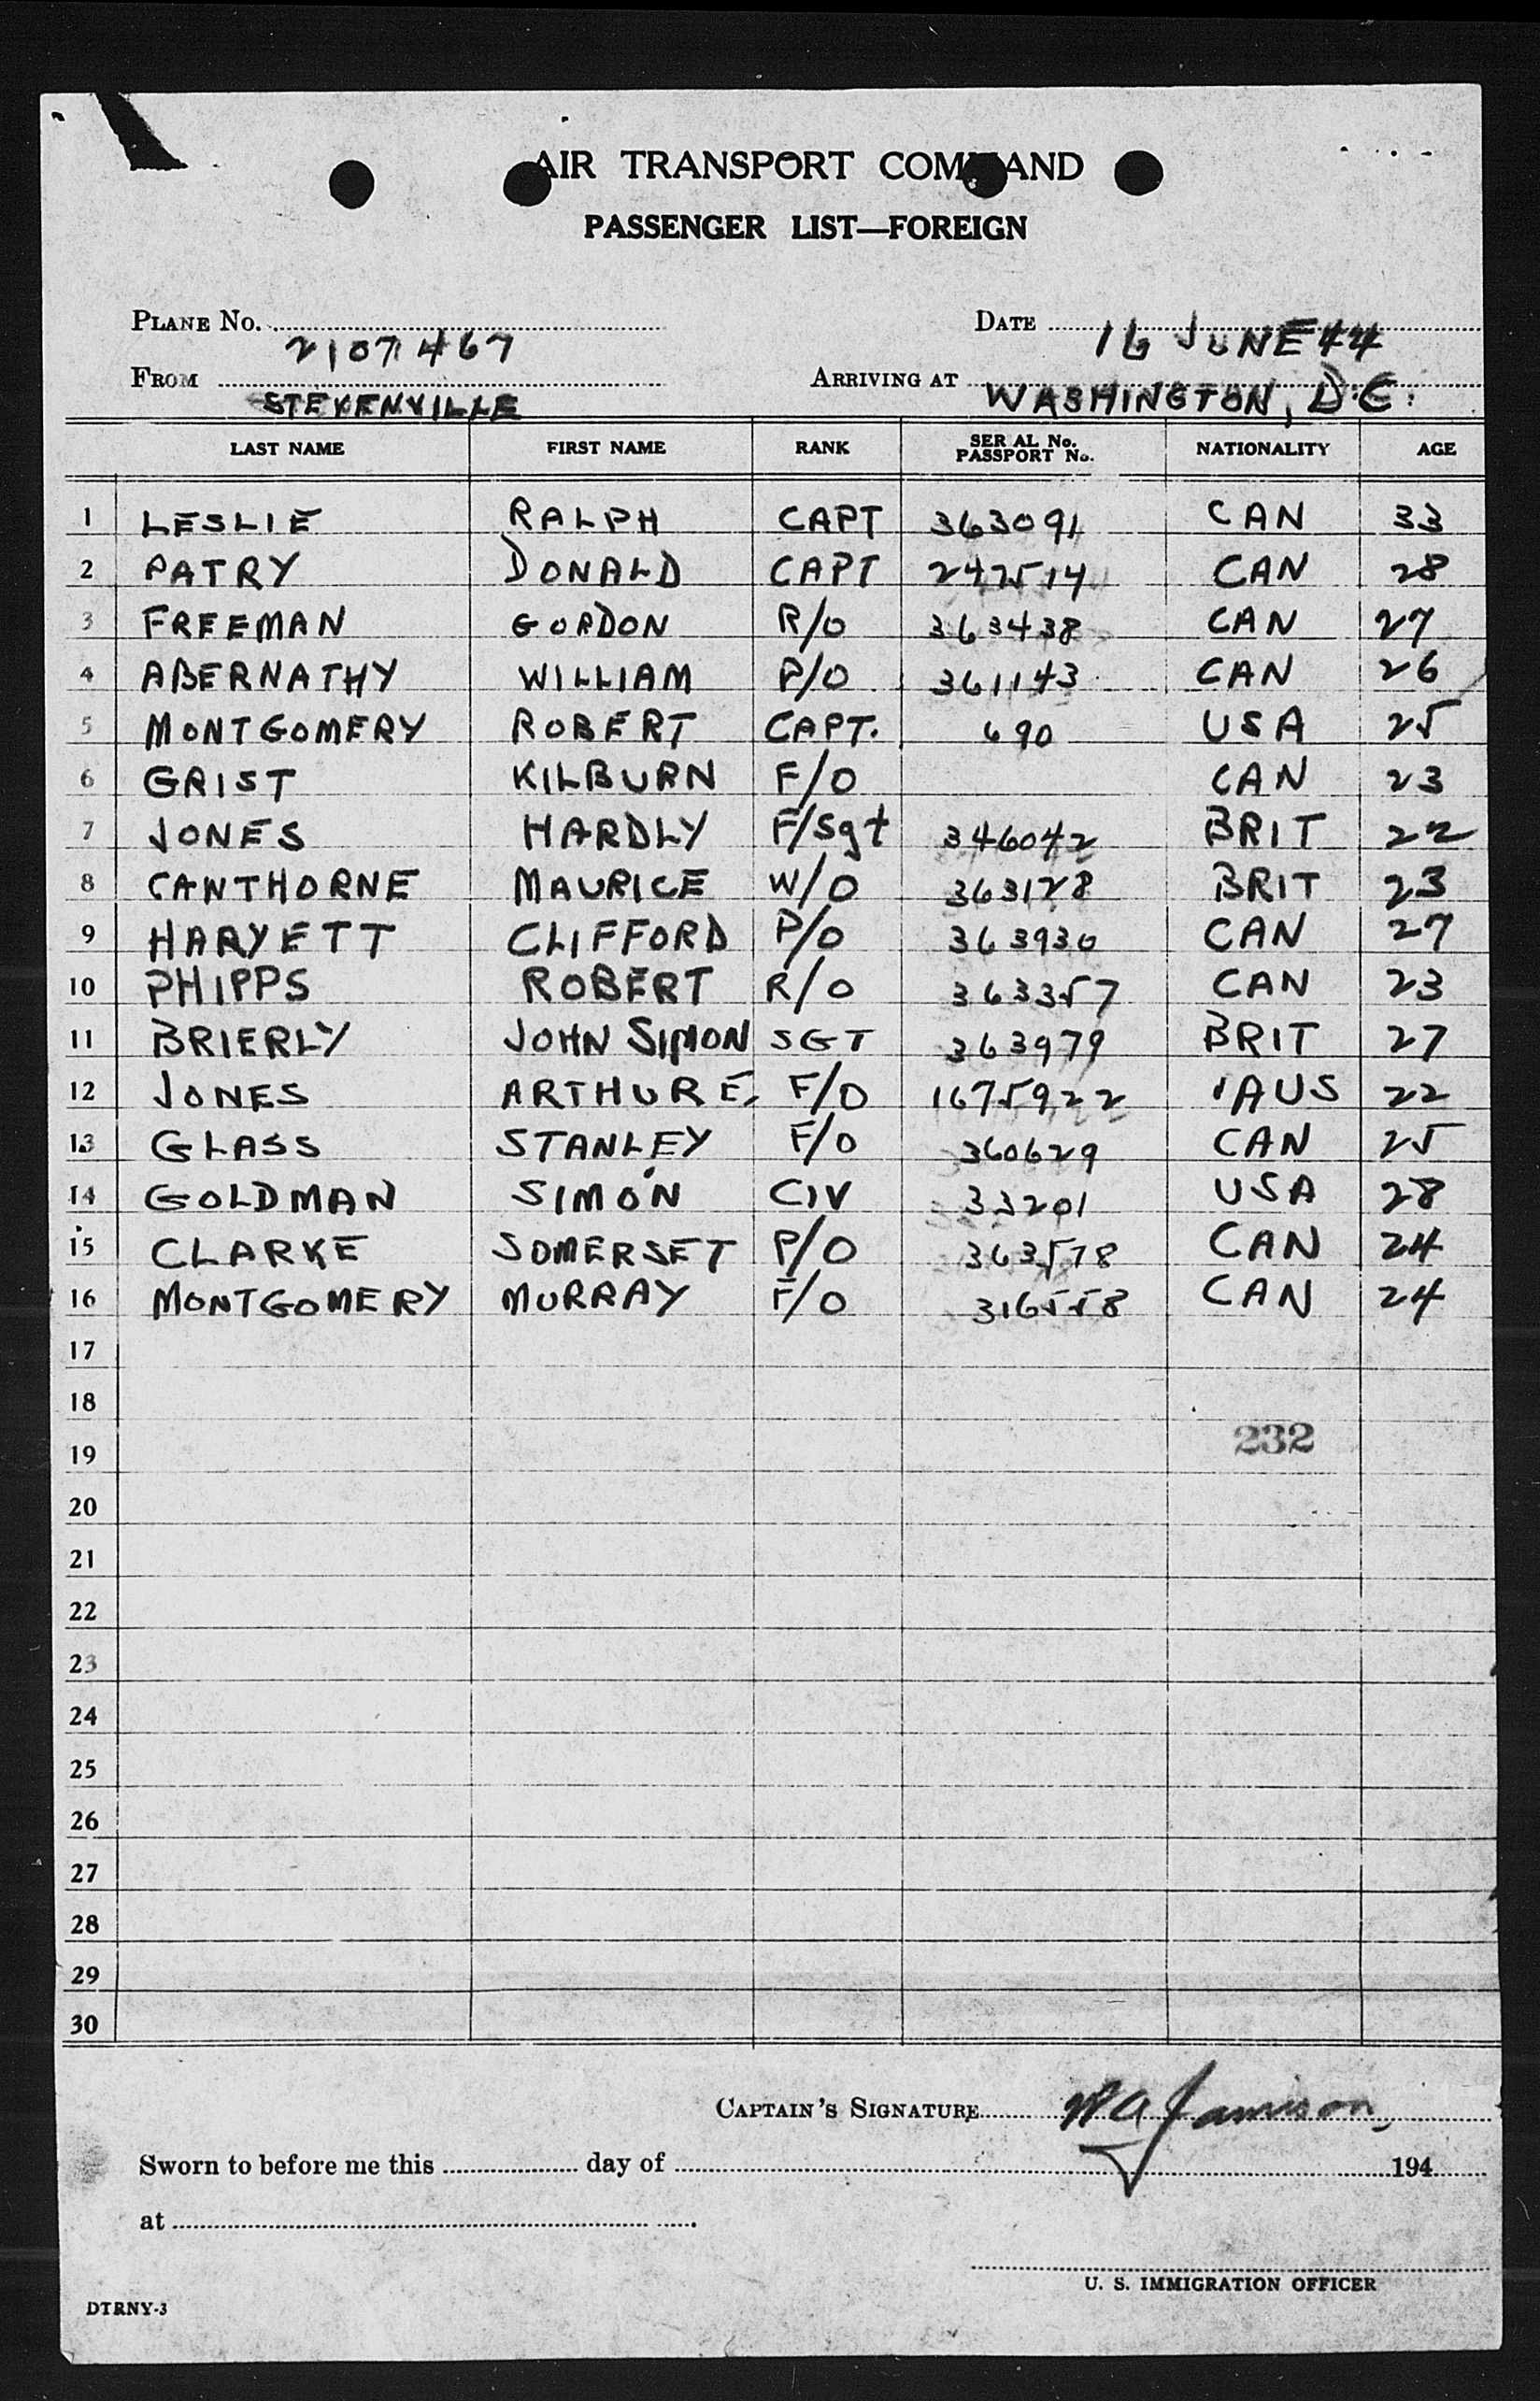 AIR TRANSPORT COMMAND
PASSENGER LIST—FOREIGN
PLANE No. 2107467 DATE 16 JUNE 44
FROM STEVENVILLE ARRIVING AT WASHINGTON, D.C.
LAST NAME FIRST NAME RANK SER AL No. PASSPORT No. NATIONALITY AGE
1 LESLIE RALPH CAPT 363091 CAN 33
2 PATRY DONALD CAPT 242514 CAN 28
3 FREEMAN GORDON R/O 363438 CAN 27
4 ABERNATHY WILLIAM P/O 361143 CAN 26
5 MONTGOMERY ROBERT CAPT. 690 USA 25
6 GRIST KILBURN F/O CAN 23
7 JONES HARDLY F/Sgt 346042 BRIT 22
8 CANTHORNE MAURICE W/O 363128 BRIT 23
9 HARYETT CLIFFORD P/O 363930 CAN 27
10 PHIPPS ROBERT R/O 363357 CAN 23
11 BRIERLY JOHN SIMON SGT 363979 BRIT 27
12 JONES ARTHUR E. F/O 1675922 AUS 22
13 GLASS STANLEY F/O 360629 CAN 25
14 GOLDMAN SIMON CIV 33201 USA 28
15 CLARKE SOMERSET P/O 363578 CAN 24
16 MONTGOMERY MURRAY F/O 316558 CAN 24
17
18
19 232
20
21
22
23
24
25
26
27
28
29
30
CAPTAIN'S SIGNATURE W A Jamison
Sworn to before me this day of 194
at
U. S. IMMIGRATION OFFICER
DTRNY-3